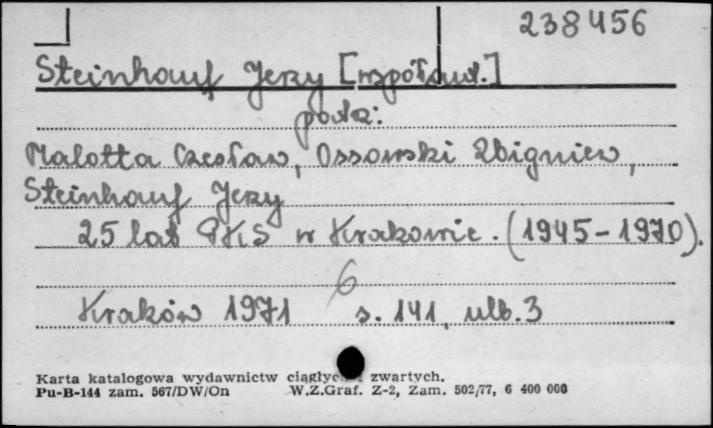 238456
Steinhauf Jerzy [współaut.]
poda:
Malotta Czesław, Ossowski Zbigniew,
Steinhauf Jerzy
25 lat PKS w Krakowie. (1945-1970).
6
Kraków 1971 s. 141, ulb. 3
Karta katalogowa wydawnictw zwartych.
Pu-B-144 zam. 567/DW/On W.Z.Graf. Z-2, Zam. 502/77, 6 400 000